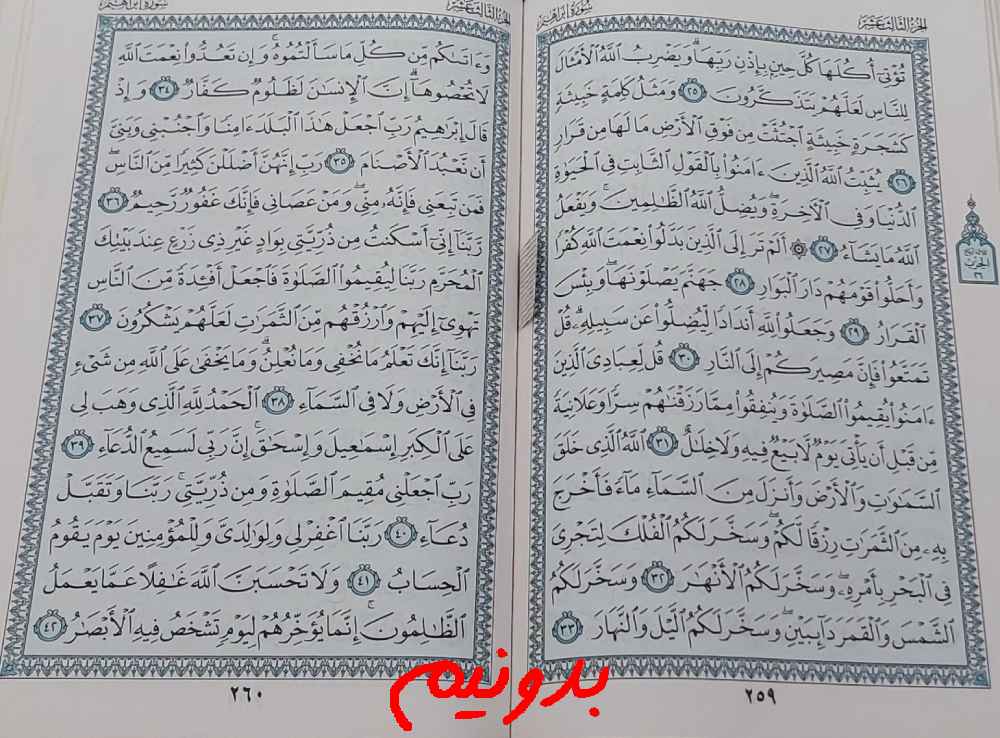 الجزء الثالث عشر
سورة إبراهيم
تُؤْتِىٓ أُكُلَهَا كُلَّ حِينٍۭ بِإِذْنِ رَبِّهَاۗ وَيَضْرِبُ ٱللَّهُ ٱلْأَمْثَالَ
لِلنَّاسِ لَعَلَّهُمْ يَتَذَكَّرُونَ ٢٥ وَمَثَلُ كَلِمَةٍ خَبِيثَةٍ
كَشَجَرَةٍ خَبِيثَةٍ ٱجْتُثَّتْ مِن فَوْقِ ٱلْأَرْضِ مَا لَهَا مِن قَرَارٍ
٢٦ يُثَبِّتُ ٱللَّهُ ٱلَّذِينَ ءَامَنُوا۟ بِٱلْقَوْلِ ٱلثَّابِتِ فِى ٱلْحَيَوٰةِ
ٱلدُّنْيَا وَفِى ٱلْءَاخِرَةِۖ وَيُضِلُّ ٱللَّهُ ٱلظَّٰلِمِينَۚ وَيَفْعَلُ
ٱللَّهُ مَا يَشَآءُ ٢٧ ۞ أَلَمْ تَرَ إِلَى ٱلَّذِينَ بَدَّلُوا۟ نِعْمَتَ ٱللَّهِ كُفْرًا
وَأَحَلُّوا۟ قَوْمَهُمْ دَارَ ٱلْبَوَارِ ٢٨ جَهَنَّمَ يَصْلَوْنَهَاۖ وَبِئْسَ
ٱلْقَرَارُ ٢٩ وَجَعَلُوا۟ لِلَّهِ أَندَادًا لِّيُضِلُّوا۟ عَن سَبِيلِهِۦۗ قُلْ
تَمَتَّعُوا۟ فَإِنَّ مَصِيرَكُمْ إِلَى ٱلنَّارِ ٣٠ قُل لِّعِبَادِىَ ٱلَّذِينَ
ءَامَنُوا۟ يُقِيمُوا۟ ٱلصَّلَوٰةَ وَيُنفِقُوا۟ مِمَّا رَزَقْنَٰهُمْ سِرًّا وَعَلَانِيَةً
مِّن قَبْلِ أَن يَأْتِىَ يَوْمٌ لَّا بَيْعٌ فِيهِ وَلَا خِلَٰلٌ ٣١ ٱللَّهُ ٱلَّذِى خَلَقَ
ٱلسَّمَٰوَٰتِ وَٱلْأَرْضَ وَأَنزَلَ مِنَ ٱلسَّمَآءِ مَآءً فَأَخْرَجَ
بِهِۦ مِنَ ٱلثَّمَرَٰتِ رِزْقًا لَّكُمْۖ وَسَخَّرَ لَكُمُ ٱلْفُلْكَ لِتَجْرِىَ
فِى ٱلْبَحْرِ بِأَمْرِهِۦۖ وَسَخَّرَ لَكُمُ ٱلْأَنْهَٰرَ ٣٢ وَسَخَّرَ لَكُمُ
ٱلشَّمْسَ وَٱلْقَمَرَ دَآئِبَيْنِۖ وَسَخَّرَ لَكُمُ ٱلَّيْلَ وَٱلنَّهَارَ ٣٣
٢٥٩
الجزء الثالث عشر
سورة إبراهيم
وَءَاتَىٰكُم مِّن كُلِّ مَا سَأَلْتُمُوهُۚ وَإِن تَعُدُّوا۟ نِعْمَتَ ٱللَّهِ
لَا تُحْصُوهَآۗ إِنَّ ٱلْإِنسَٰنَ لَظَلُومٌ كَفَّارٌ ٣٤ وَإِذْ
قَالَ إِبْرَٰهِيمُ رَبِّ ٱجْعَلْ هَٰذَا ٱلْبَلَدَ ءَامِنًا وَٱجْنُبْنِى وَبَنِىَّ
أَن نَّعْبُدَ ٱلْأَصْنَامَ ٣٥ رَبِّ إِنَّهُنَّ أَضْلَلْنَ كَثِيرًا مِّنَ ٱلنَّاسِۖ
فَمَن تَبِعَنِى فَإِنَّهُۥ مِنِّىۖ وَمَنْ عَصَانِى فَإِنَّكَ غَفُورٌ رَّحِيمٌ ٣٦
رَّبَّنَآ إِنِّىٓ أَسْكَنتُ مِن ذُرِّيَّتِى بِوَادٍ غَيْرِ ذِى زَرْعٍ عِندَ بَيْتِكَ
ٱلْمُحَرَّمِ رَبَّنَا لِيُقِيمُوا۟ ٱلصَّلَوٰةَ فَٱجْعَلْ أَفْـِٔدَةً مِّنَ ٱلنَّاسِ
تَهْوِىٓ إِلَيْهِمْ وَٱرْزُقْهُم مِّنَ ٱلثَّمَرَٰتِ لَعَلَّهُمْ يَشْكُرُونَ ٣٧
رَبَّنَآ إِنَّكَ تَعْلَمُ مَا نُخْفِى وَمَا نُعْلِنُۗ وَمَا يَخْفَىٰ عَلَى ٱللَّهِ مِن شَىْءٍ
فِى ٱلْأَرْضِ وَلَا فِى ٱلسَّمَآءِ ٣٨ ٱلْحَمْدُ لِلَّهِ ٱلَّذِى وَهَبَ لِى
عَلَى ٱلْكِبَرِ إِسْمَٰعِيلَ وَإِسْحَٰقَۚ إِنَّ رَبِّى لَسَمِيعُ ٱلدُّعَآءِ ٣٩
رَبِّ ٱجْعَلْنِى مُقِيمَ ٱلصَّلَوٰةِ وَمِن ذُرِّيَّتِىۚ رَبَّنَا وَتَقَبَّلْ
دُعَآءِ ٤٠ رَبَّنَا ٱغْفِرْ لِى وَلِوَٰلِدَىَّ وَلِلْمُؤْمِنِينَ يَوْمَ يَقُومُ
ٱلْحِسَابُ ٤١ وَلَا تَحْسَبَنَّ ٱللَّهَ غَٰفِلًا عَمَّا يَعْمَلُ
ٱلظَّٰلِمُونَۚ إِنَّمَا يُؤَخِّرُهُمْ لِيَوْمٍ تَشْخَصُ فِيهِ ٱلْأَبْصَٰرُ ٤٢
٢٦٠
بدونیم